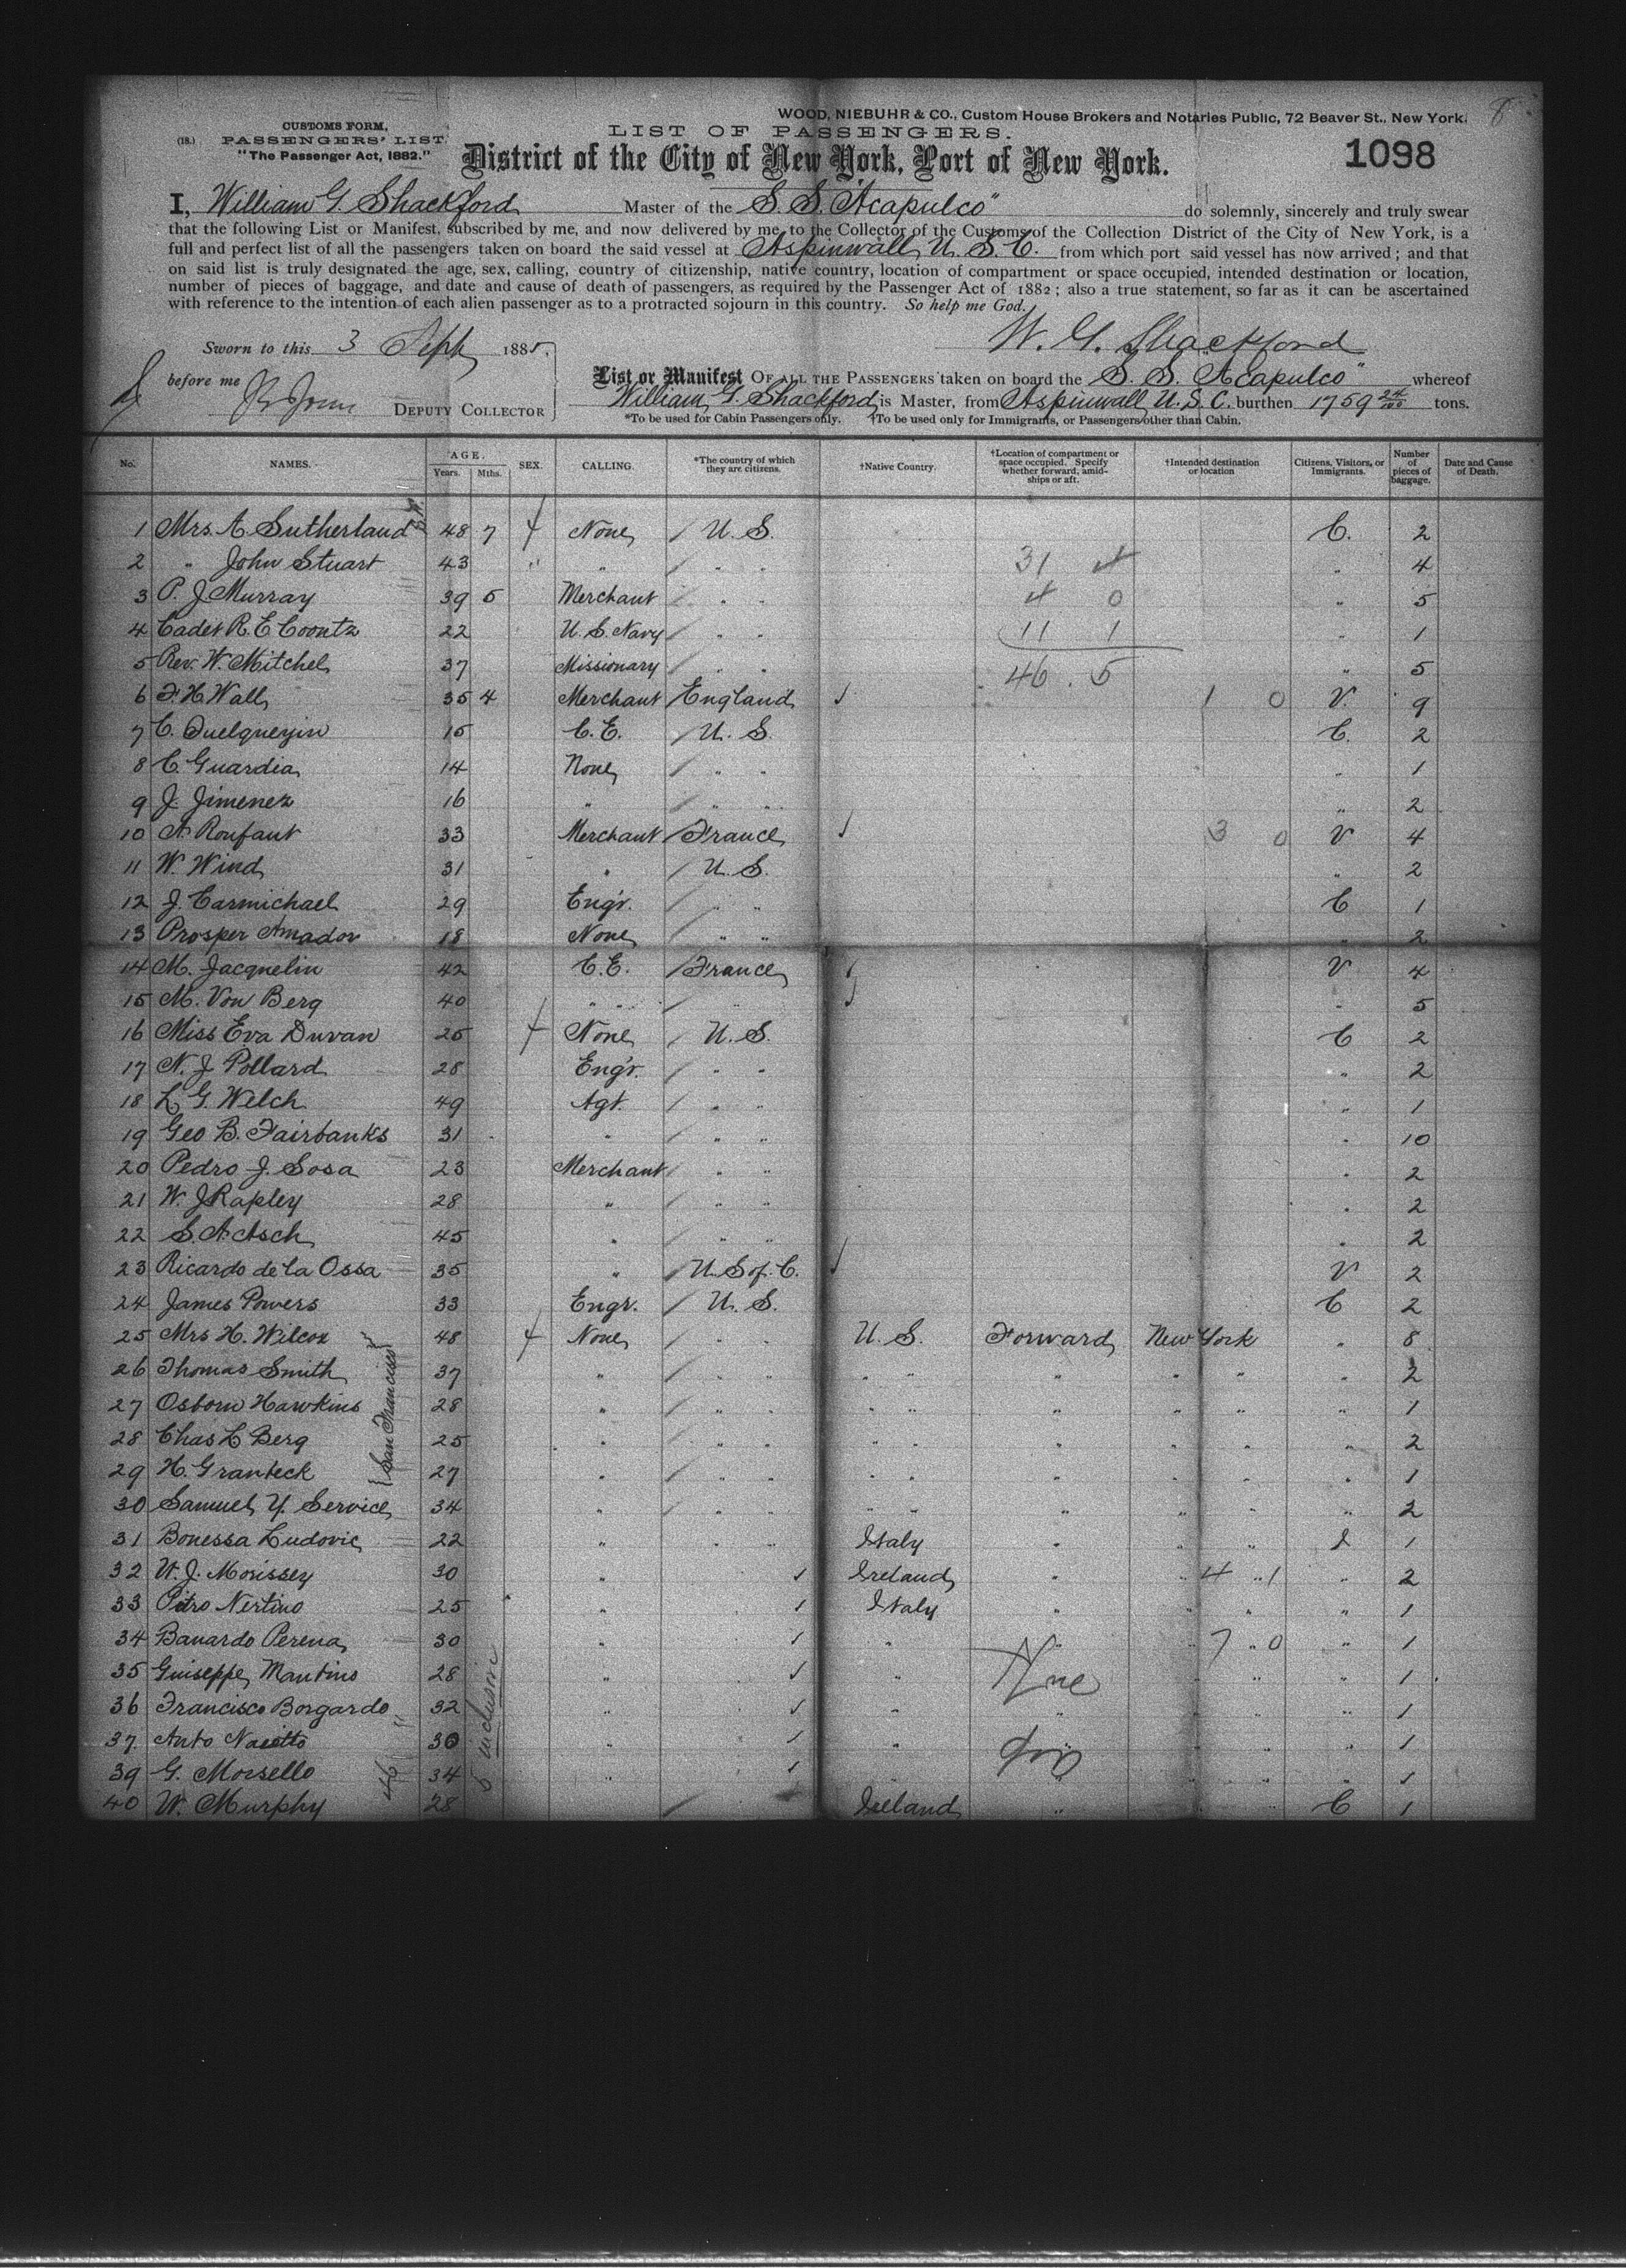 WOOD, NIEBUHR & CO., Custom House Brokers and Notaries Public, 72 Beaver St., New York. 8
(18.) CUSTOMS FORM,
PASSENGERS' LIST.
"The Passenger Act, 1882."
LIST OF PASSENGERS.
District of the City of New York, Port of New York.
1098
I, William G. Shackford Master of the S. S. "Acapulco" do solemnly, sincerely and truly swear
that the following List or Manifest, subscribed by me, and now delivered by me to the Collector of the Customs of the Collection District of the City of New York, is a
full and perfect list of all the passengers taken on board the said vessel at Aspinwall, U. S. C. from which port said vessel has now arrived; and that
on said list is truly designated the age, sex, calling, country of citizenship, native country, location of compartment or space occupied, intended destination or location,
number of pieces of baggage, and date and cause of death of passengers, as required by the Passenger Act of 1882; also a true statement, so far as it can be ascertained
with reference to the intention of each alien passenger as to a protracted sojourn in this country. So help me God.
W. G. Shackford
Sworn to this 3 Sept 1885.
before me
DEPUTY COLLECTOR
List or Manifest OF ALL THE PASSENGERS taken on board the S. S. "Acapulco" whereof
William G. Shackford is Master, from Aspinwall, U. S. C. burthen 1759 24/100 tons.
*To be used for Cabin Passengers only. †To be used only for Immigrants, or Passengers other than Cabin.
No. NAMES. AGE. Years. Mths. SEX. CALLING. *The country of which they are citizens. †Native Country. †Location of compartment or space occupied. Specify whether forward, amidships or aft. †Intended destination or location Citizens, Visitors, or Immigrants. Number of pieces of baggage. Date and Cause of Death.
1 Mrs. A. Sutherland 48 7 f None / U. S. C. 2
2 " John Stuart 43 " " / " " 31 4 " 4
3 P. J. Murray 39 5 Merchant / " " 4 0 " 5
4 Cadet R. E. Coontz 22 U. S. Navy / " " 11 1 " 1
5 Rev. W. Mitchel 37 Missionary / " " 46 5 " 5
6 F. H. Wall 35 4 Merchant England 1 0 V. 9
7 C. 15 C. E. / U. S. C. 2
8 C. Guardia 14 None / " " " 1
9 J. Jimenez 16 " / " " " 2
10 A. Roufaut 33 Merchant / France 3 0 V 4
11 W. Wind 31 " U. S. " 2
12 J. Carmichael 29 Engr. " " C 1
13 Prosper Amador 18 None " " " 2
14 M. Jacquelin 42 C. E. / France V 4
15 M. Von Berg 40 " " / " " 5
16 Miss Eva Duvan 25 f None / U. S. C 2
17 N. J. Pollard 28 Engr. / " " " 2
18 L. G. Welch 49 Agt. / " " " 1
19 Geo B. Fairbanks 31 " / " " " 10
20 Pedro J. Sosa 23 Merchant / " " " 2
21 W. J. Rapley 28 " / " " " 2
22 S. A. Asch 45 " / " " " 2
23 Ricardo de la Ossa 35 " U. S. of. C. V 2
24 James Powers 33 Engr. / U. S. C 2
25 Mrs H. Wilcox 48 f None / " " U. S. Forward New York " 8
26 Thomas Smith 37 " / " " " " " " " " 2
27 Osborn Hawkins 28 " / " " " " " " " " 1
28 Chas L. Berg 25 " / " " " " " " " " 2
29 H. Granbeck 27 " / " " " " " " " " 1
San Francisco
30 Samuel Y. Service 34 " / " " " " " " " " 2
31 Bonessa Ludovic 22 " " " Italy " " " I 1
32 W. J. Morissey 30 " Ireland " 4 1 " 2
33 Pitro Nertino 25 " Italy " " " " 1
34 Banardo Perena 30 " " " 7 0 " 1
35 Guiseppe Mantino 28 " " " " " 1
36 Francisco Borgardo 32 " " " " " 1
37. Anto 30 " " " " " 1
39 G. Morsello 34 " " " " " 1
40 W. Murphy 28 / Ireland " " " C 1
46
inclusive